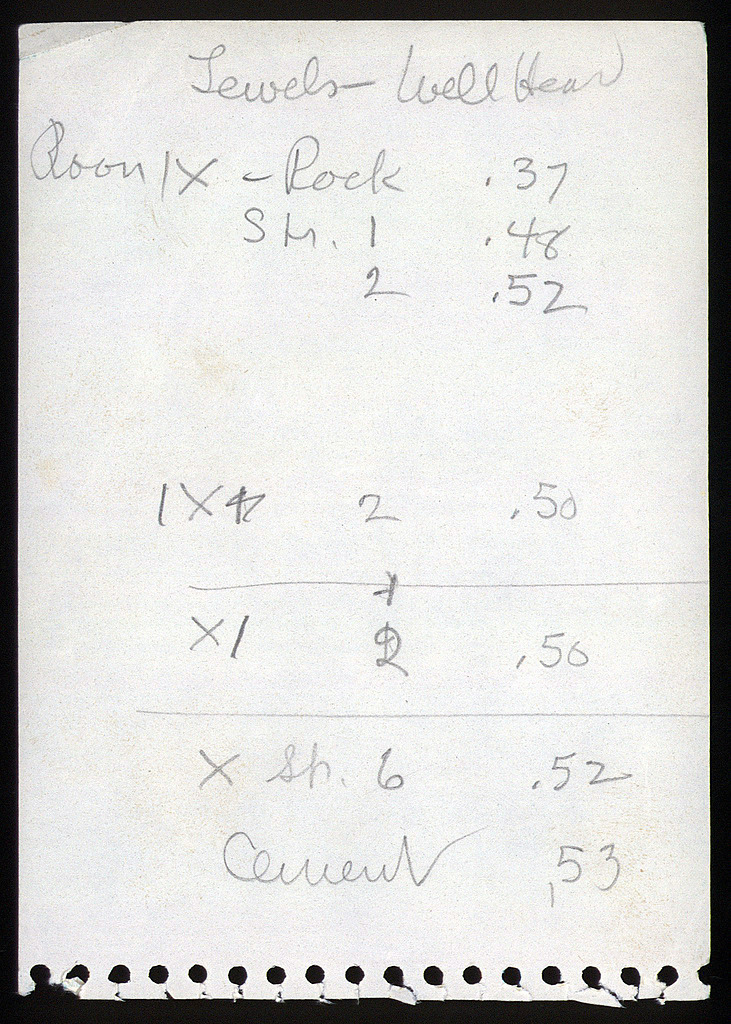 Jewels - Well Head
Room IX - Rock .37
Sh. 1 .48
2 .52
IX 2 .50
XI 2 .50
X Sh. 6 .52
Cement .53